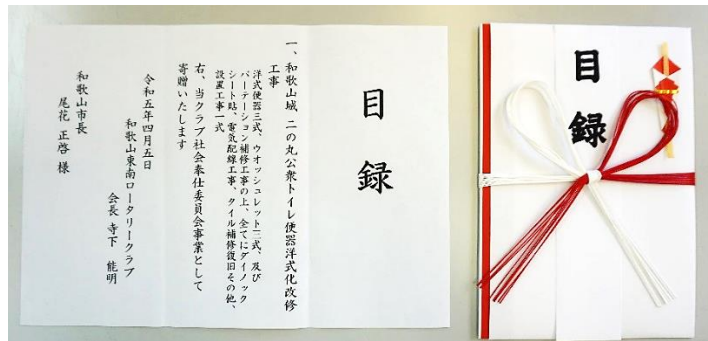 目録
一、和歌山城、二の丸公衆トイレ便器洋式化改修
工事
洋式便器三式、ウオッシュレット二式、及び
パーテーション補修工事の上、全てにダイノック
シート貼、電気配線工事、タイル補修復旧その他、
設置工事一式
右、当クラブ社会奉仕委員会事業として
寄贈いたします
令和五年四月五日
和歌山東南ロータリークラブ
会長 寺下 能明
和歌山市長
尾花 正啓 様
目録